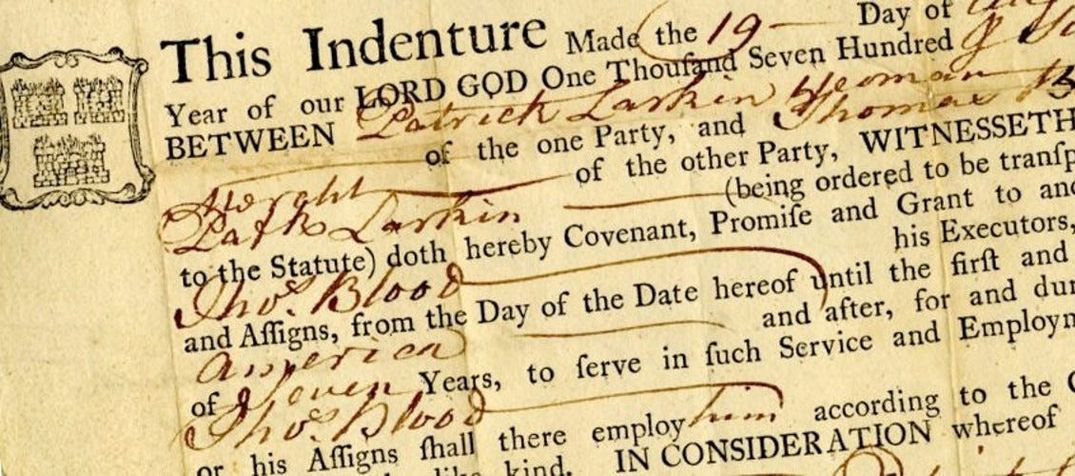 This Indenture Made the 19 Day of
Year of our LORD GOD One Thouſand Seven Hundred
BETWEEN Patrick Larkin Yeoman
of the one Party, and Thomas
Mercht of the other Party, WITNESSETH
Patk Larkin (being ordered to be tranſp
to the Statute) doth hereby Covenant, Promiſe and Grant to and
Thos. Blood his Executors,
and Aſſigns, from the Day of the Date hereof until the firſt and
America and after, for and dur
of Seven Years, to ſerve in ſuch Service and Employm
Thos. Blood
or his Aſſigns ſhall there employ him according to the
like kind. IN CONSIDERATION whereof